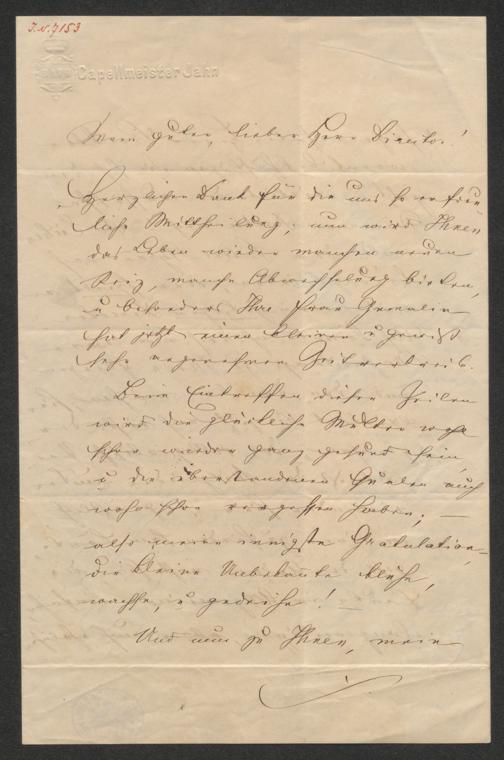 J.N. 7153
Capellmeister Jahn
Mein guter, lieber Herr Director!
Herzlichen Dank für die uns so erfreu
liche Mittheilung; nun wird Ihnen
das Leben wieder manchen neuen
Reiz, manche Abwechselung bieten,
u besonders Ihre Frau Gemalin
hat jetzt einen kleinen u gewiß
sehr angenehmen Zeitvertreib.
Beim Eintreffen dieser Zeilen
wird die glückliche Mutter wohl
schon wieder ganz gesund sein,
u die überstandenen Qualen auch
wohl schon vergessen haben; —
also meine innigste Gratulation,
die kleine Unbekannte blühe,
wachse, u gedeihe! —
Und nun zu Ihnen, mein